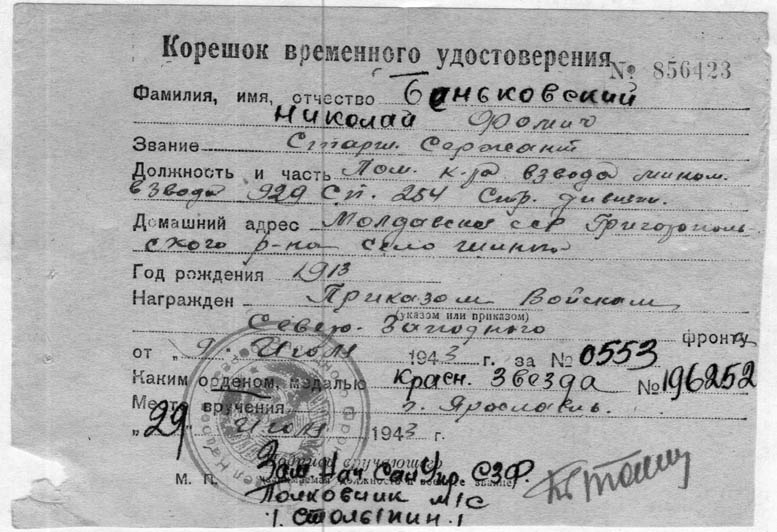 Корешок временного удостоверения
№ 856423
Фамилия, имя, отчество Баньковский
Николай Фомич
Звание Старш. Сержант
Должность и часть Пом. к-ра взвода мином.
взвода 929 Сп. 254 Стр. дивизии.
Домашний адрес Молдавская сср Григориополь-
ского р-на село
Год рождения 1913
Награжден Приказом Войскам
(указом или приказом)
Северо-Западного фронту
от „9“ Июля 1943 г. за № 0553
Каким орденом, медалью Красн. Звезда № 196252
Место вручения г. Ярославль.
„29“ Июля 1943 г.
Подпись вручающего
Зам Нач Сан Упр. СЗФ.
М. П. (занимаемая должность и военное звание)
Полковник м/с
/. Столыпин./